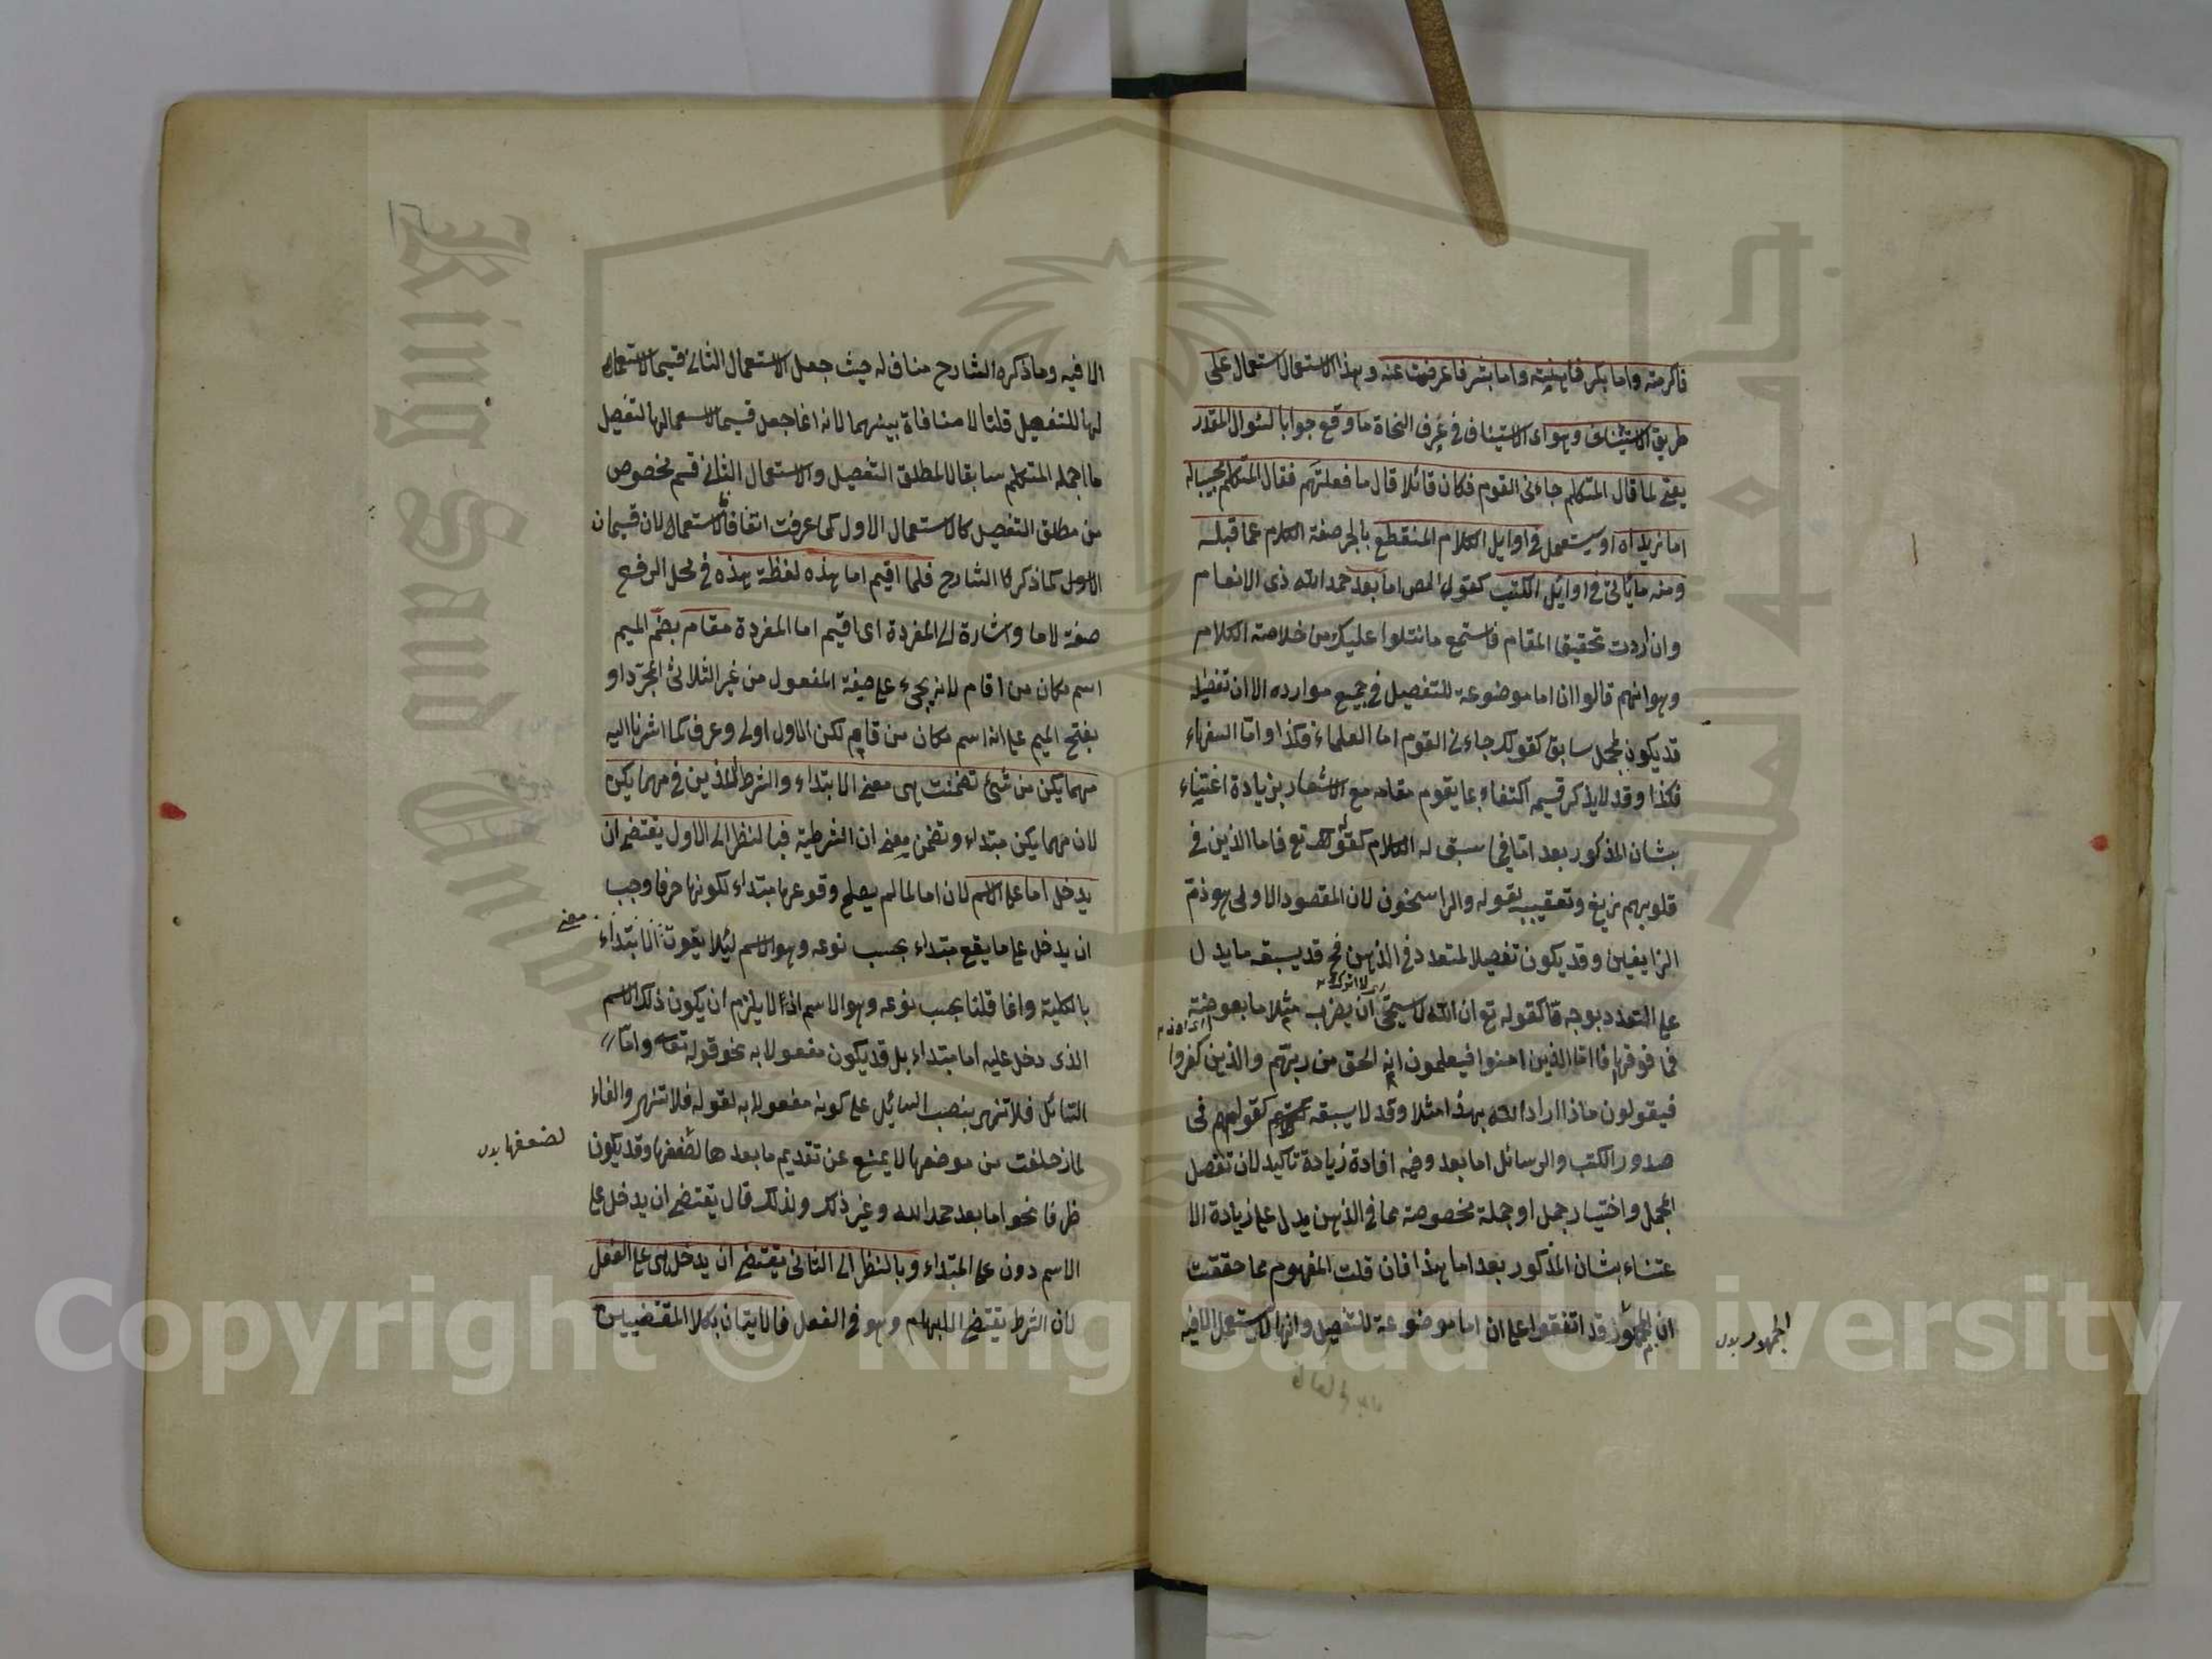 فاكرمته واما بكر فاهنيته واما بشر فاعرضت عنه وهذا الاستعمال استعمال على
طريق الاستيناف وهو اى الاستيناف فى عرف النحاة ما وقع جوابا لسئوال المقدر
يعنى لما قال المتكلم جاءنى القوم فكان قائلا قال ما فعلتهم فقال المتكلم مجيبا له
اما زيد اه او يستعمل فى اوايل الكلام المنقطع بالجر صفة الكلام عما قبله
ومنه ما يأتى فى اوايل الكتب كقول المص اما بعد حمد الله ذى الانعام
وان اردت تحقيق المقام فاستمع ما نتلوا عليك من خلاصة الكلام
وهو انهم قالوا ان اما موضوعة للتفصيل فى جميع موارده الا ان تفصيله
قد يكون لمجمل سابق كقولك جاءنى القوم اما العلماء فكذا واما السفهاء
فكذا وقد لا يذكر قسيمه اكتفاء بما يقوم مقامه مع الاشعار بزيادة اعتناء
بشان المذكور بعد اما فيما سبق له الكلام كقوله تع فاما الذين فى
قلوبهم زيغ وتعقيبه بقوله والراسخون لان المقصود الاولى هو ذم
الزايغين وقد يكون تفصيلا لمتعدد فى الذهن فح قد يسبقه ما يدل
على المتعدد بوجه ما كقوله تع ان الله لا يستحيى ان يضرب مثلا ما بعوضة
فما فوقها فاما الذين امنوا فيعلمون انه الحق من ربهم والذين كفروا
فيقولون ماذا اراد الله بهذا مثلا وقد لا يسبقه كقولهم فى
صدور الكتب والرسائل اما بعد وفيه افادة زيادة تأكيد لان تفصل
المجمل واختيار جمل او جملة مخصوصة مما فى الذهن يدل على زيادة الا
عتناء بشان المذكور بعد اما هذا فان قلت المفهوم مما حققت
ان الجمهور قد اتفقوا على ان اما موضوعة للتفصيل وانها لا يستعمل الا فيه
الجمهور بدل
١٢
الا فيه وما ذكره الشارح مناف له حيث جعل الاستعمال الثانى قسيما لاستعمال
لها للتفصيل قلنا لا منافاة بينهما لانه انما جعل قسيما لاستعمالها لتفصيل
ما اجمله المتكلم سابقا لا لمطلق التفصيل والاستعمال الثانى قسم مخصوص
من مطلق التفصيل كالاستعمال الاول كما عرفت اتفاقا فالاستعمالان قسيمان
الاول كما ذكرنا الشارح فلما اقيم اما هذه لفظة هذه فى محل الرفع
صفة لاما واشارة الى المفردة اى اقيم اما المفردة مقام بضم الميم
اسم مكان من اقام لانه يجىء على صيغة المفعول من غير الثلاثى المجرد او
بفتح الميم على انه اسم مكان من قام لكن الاول اولى وعرف كما اشرنا اليه
مهما يكن من شئ تضمنت هى معنى الابتداء والشرط اللذين فى مهما يكن
لان مهما يكن مبتداء وتضمن معنى ان الشرطية فبا لنظر الى الاول يقتضى ان
يدخل اما على الاسم لان اما لما لم يصلح وقوعها مبتداء لكونها حرفا وجب
ان يدخل على ما يقع مبتداء بحسب نوعه وهو الاسم ليلا يفوت الابتداء
معنى
بالكلية وانما قلنا بحسب نوعه وهو الاسم اذ لا يلزم ان يكون ذلك الاسم
الذى دخل عليه اما مبتداء بل قد يكون مفعولا به نحو قوله تعه واما
السائل فلا تنهر بنصب السائل على كونه مفعولا به لقوله فلا تنهر والفاء
لما زحلفت من موضعها لا يمنع عن تقديم ما بعدها لضعفها وقد يكون
لضعفها بدل
ظرفا نحو اما بعد حمد الله وغير ذلك ولذلك قال يقتضى ان يدخل على
الاسم دون على المبتداء وبالنظر الى الثانى يقتضى ان يدخل هى على الفعل
لان الشرط يقتضى الابهام وهو فى الفعل فالايتان بكلا المقتضيين
King Saud University
جامعة الملك سعود
1957
Copyright © King Saud University